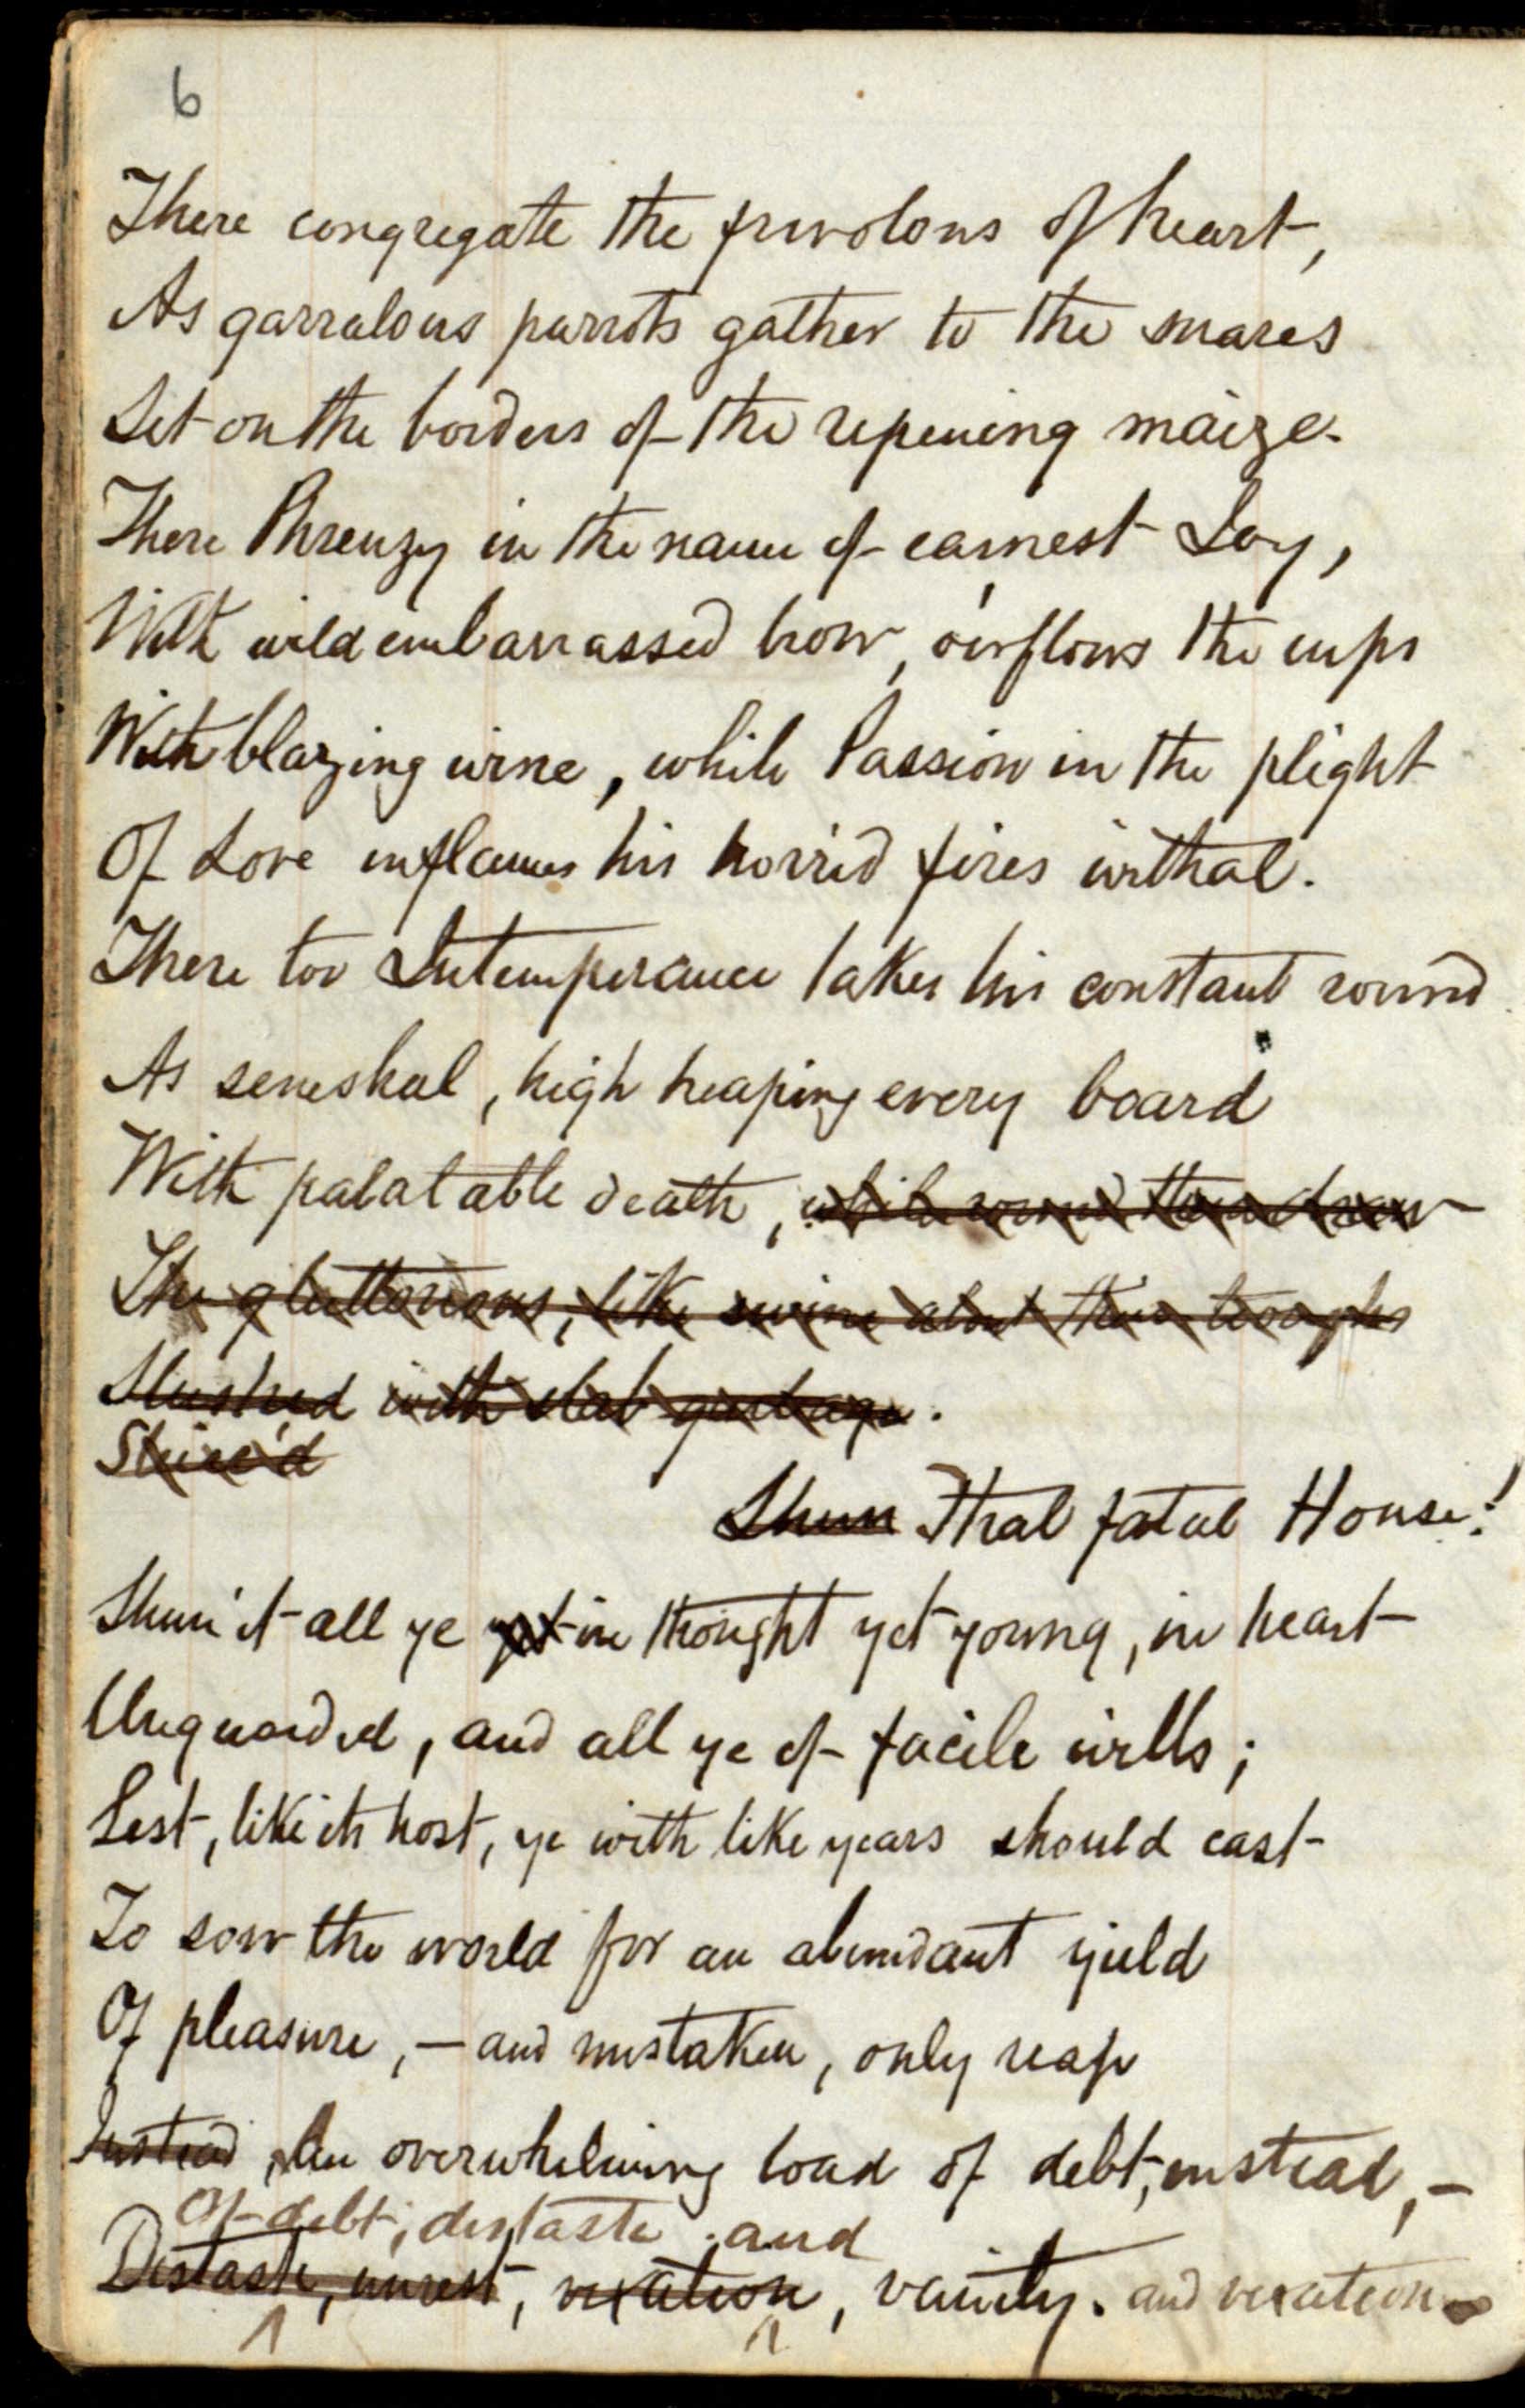 6
There congregate the frivolous of heart,
As garralous parrots gather to the snares
Set on the borders of the repening maize.
There Phrenzy in the name of earnest Joy,
With wild embarrassed brow, o'erflows the cups
With blazing wine, while Passion in the plight
Of Love enflames his horrid fires withal.
There too Intemperance takes his constant round
As seneshal, high heaping every board
With palatable death, while round them draw
The gluttonous, like swine about their troughs
Slushed with slab garbage.
Sluic'd
Shun That fatal House!
Shun it all ye yet in thought yet young, in heart
Unguarded, and all ye of facile wills;
Lest, like its host, ye with like years should cast
To sow the world for an abundant yield
Of pleasure, — and mistaken, only reap
Instead, An overwhelming load of debt, instead, —
Of debt, distaste, and
Distaste, unrest, vexation, vanity. and vexation